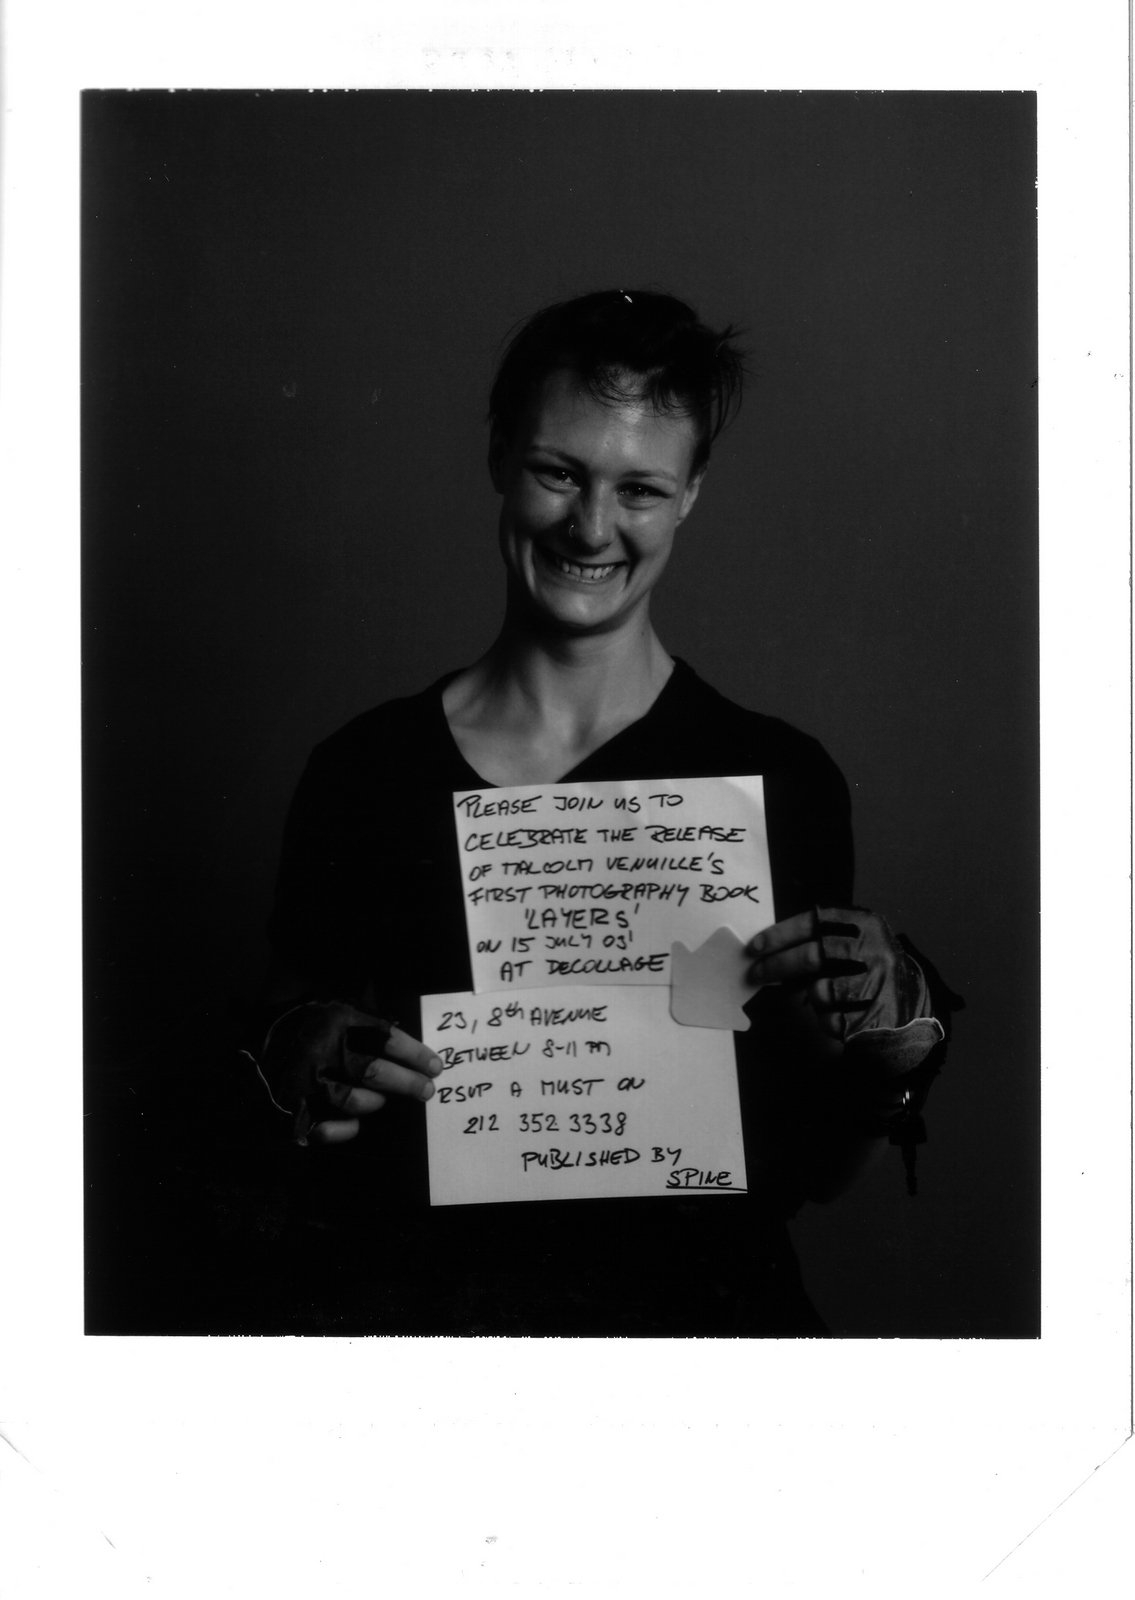 PLEASE JOIN US TO
CELEBRATE THE RELEASE
OF MALCOLM VENVILLE'S
FIRST PHOTOGRAPHY BOOK
'LAYERS'
ON 15 JULY 03'
AT DECOLLAGE
23, 8th AVENUE
BETWEEN 8-11 PM
RSVP A MUST ON
212 352 3338
PUBLISHED BY
SPINE